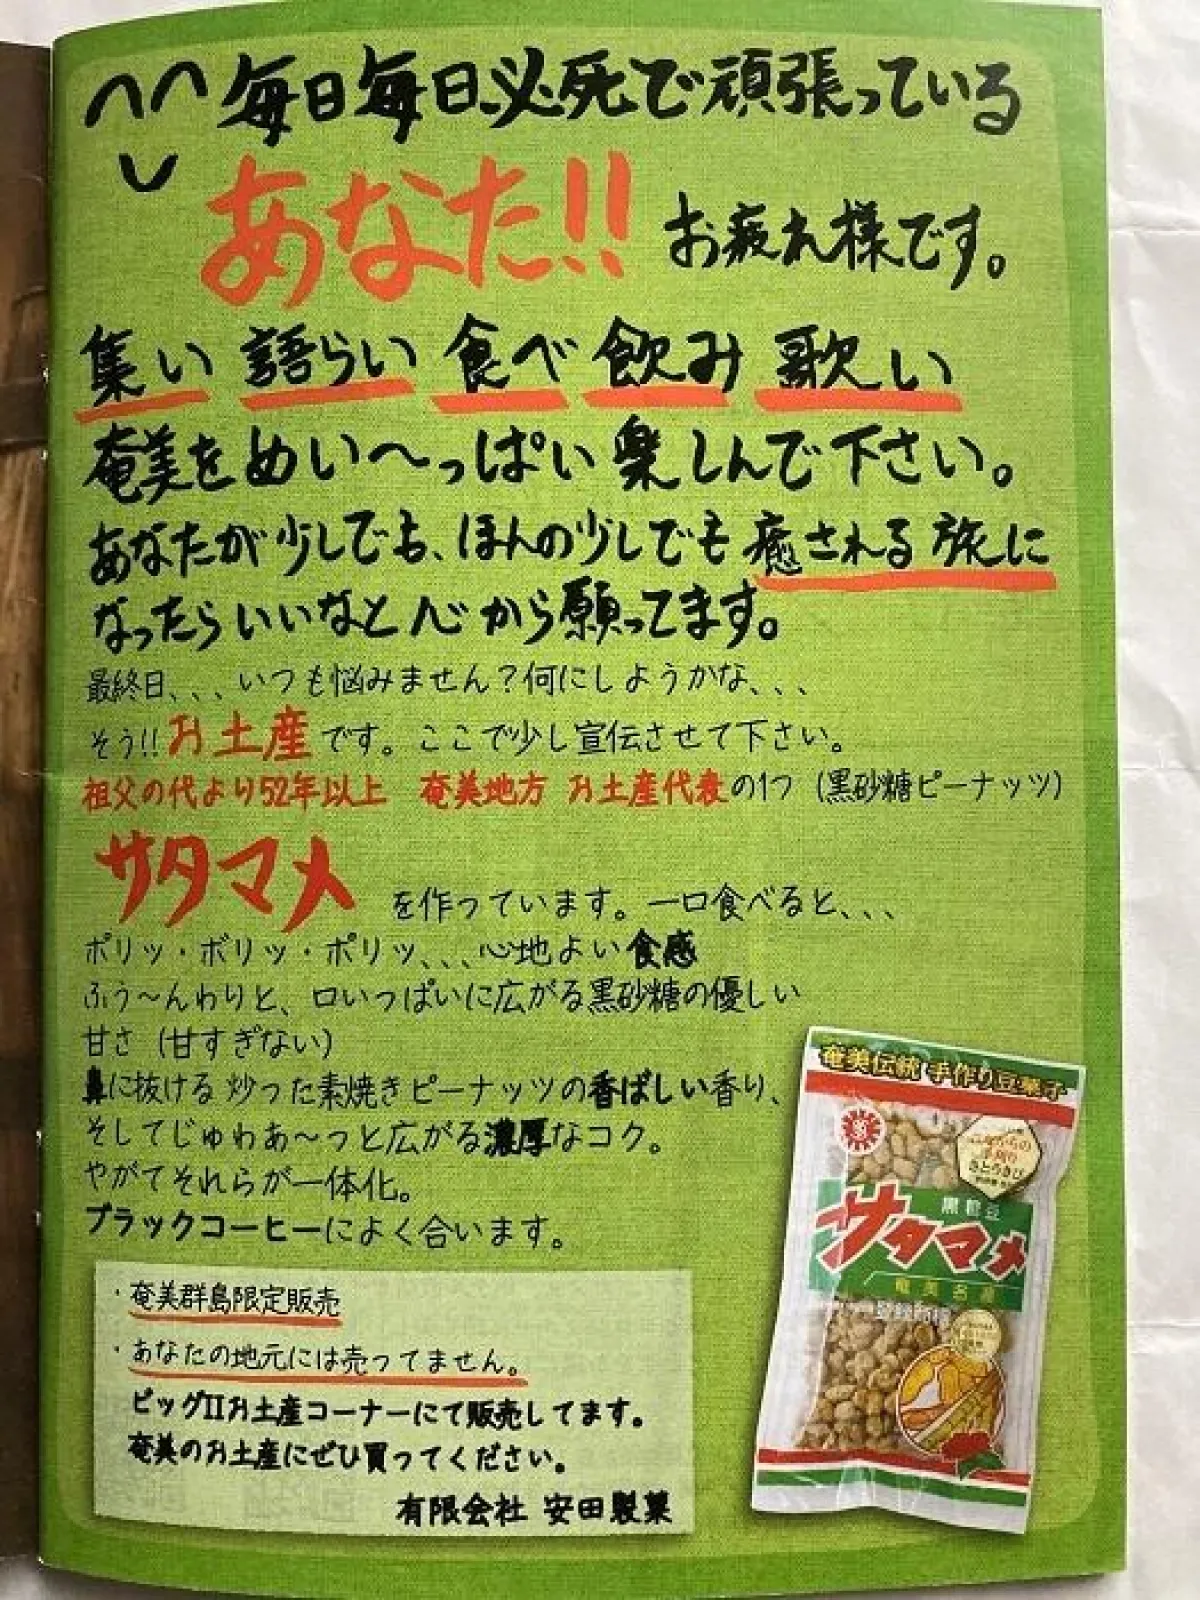 毎日毎日、必死で頑張っている
あなた!! お疲れ様です。
集い 語らい 食べ 飲み 歌い
奄美をめい〜っぱい楽しんで下さい。
あなたが少しでも、ほんの少しでも癒される旅に
なったらいいなと心から願ってます。
最終日、、、いつも悩みません？何にしようかな、、、
そう!!お土産です。ここで少し宣伝させて下さい。
祖父の代より52年以上 奄美地方 お土産代表の1つ（黒砂糖ピーナッツ）
サタマメを作っています。一口食べると、、、
ポリッ・ボリッ・ポリッ、、、心地よい食感
ふう〜んわりと、口いっぱいに広がる黒砂糖の優しい
甘さ（甘すぎない）
鼻に抜ける炒った素焼きピーナッツの香ばしい香り、
そしてじゅわあ〜っと広がる濃厚なコク。
やがてそれらが一体化。
ブラックコーヒーによく合います。
・奄美群島限定販売
・あなたの地元には売ってません。
ビッグIIお土産コーナーにて販売してます。
奄美のお土産にぜひ買ってください。
有限会社 安田製菓
奄美伝統 手作り豆菓子
さとうきび
黒糖豆
サタマメ
奄美名産